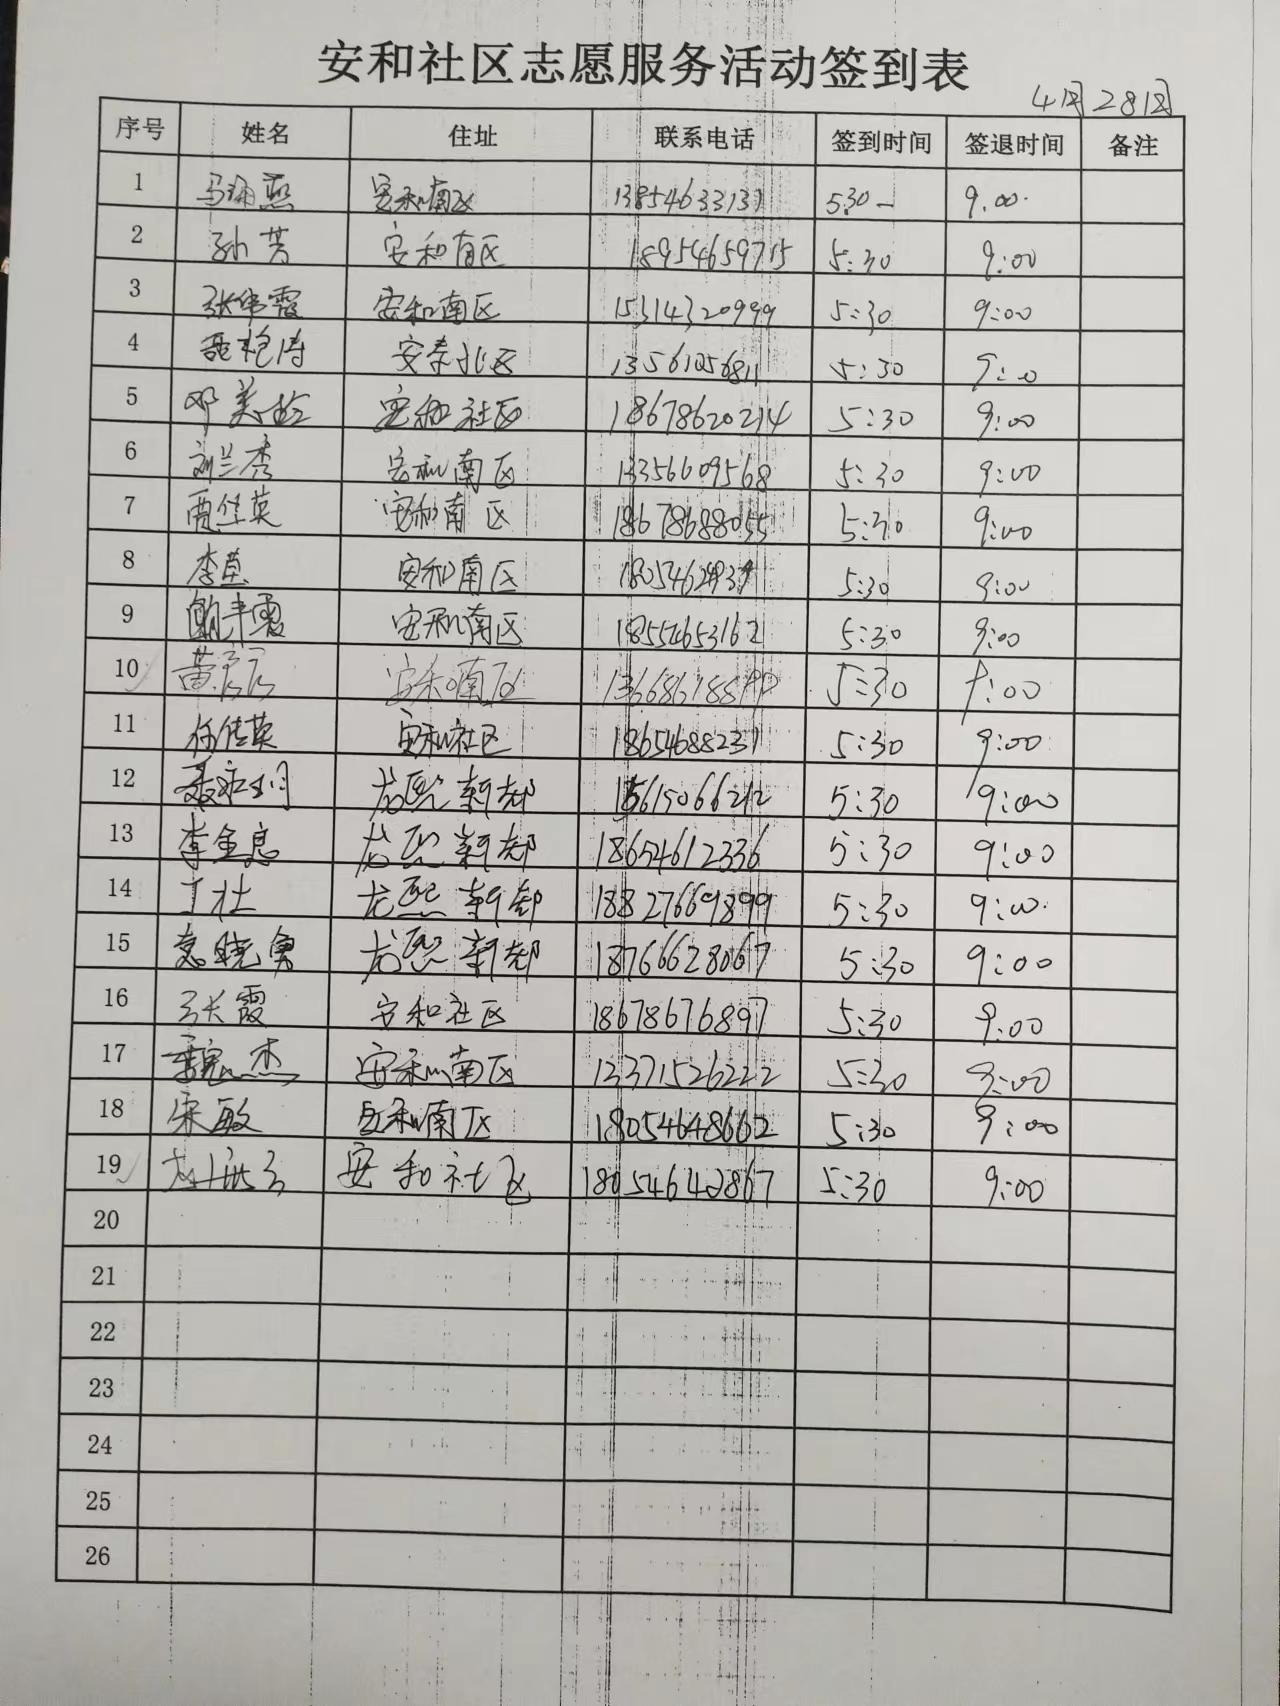 安和社区志愿服务活动签到表
4月28日
序号 姓名 住址 联系电话 签到时间 签退时间 备注
1 安和南区 13854633131 5:30 9:00
2 孙芳 安和南区 18954659715 5:30 9:00
3 张伟霞 安和南区 15314320999 5:30 9:00
4 安泰北区 13561056811 5:30 9:00
5 邓美玲 安和社区 18678620214 5:30 9:00
6 刘兰秀 安和南区 13356609568 5:30 9:00
7 贾佳英 安和南区 18678688055 5:30 9:00
8 安和南区 5:30 9:00
9 安和南区 18554653162 5:30 9:00
10 安和南区 5:30 9:00
11 任佳英 安和社区 18654688231 5:30 9:00
12 龙熙新都 15615066212 5:30 9:00
13 李金息 龙熙新都 18654612336 5:30 9:00
14 丁杜 龙熙新都 18827669899 5:30 9:00
15 袁晓勇 龙熙新都 18766628067 5:30 9:00
16 张霞 安和社区 18678676897 5:30 9:00
17 魏杰 安和南区 13371526222 5:30 9:00
18 宋敏 安和南区 18054648662 5:30 9:00
19 安和社区 18054642867 5:30 9:00
20
21
22
23
24
25
26